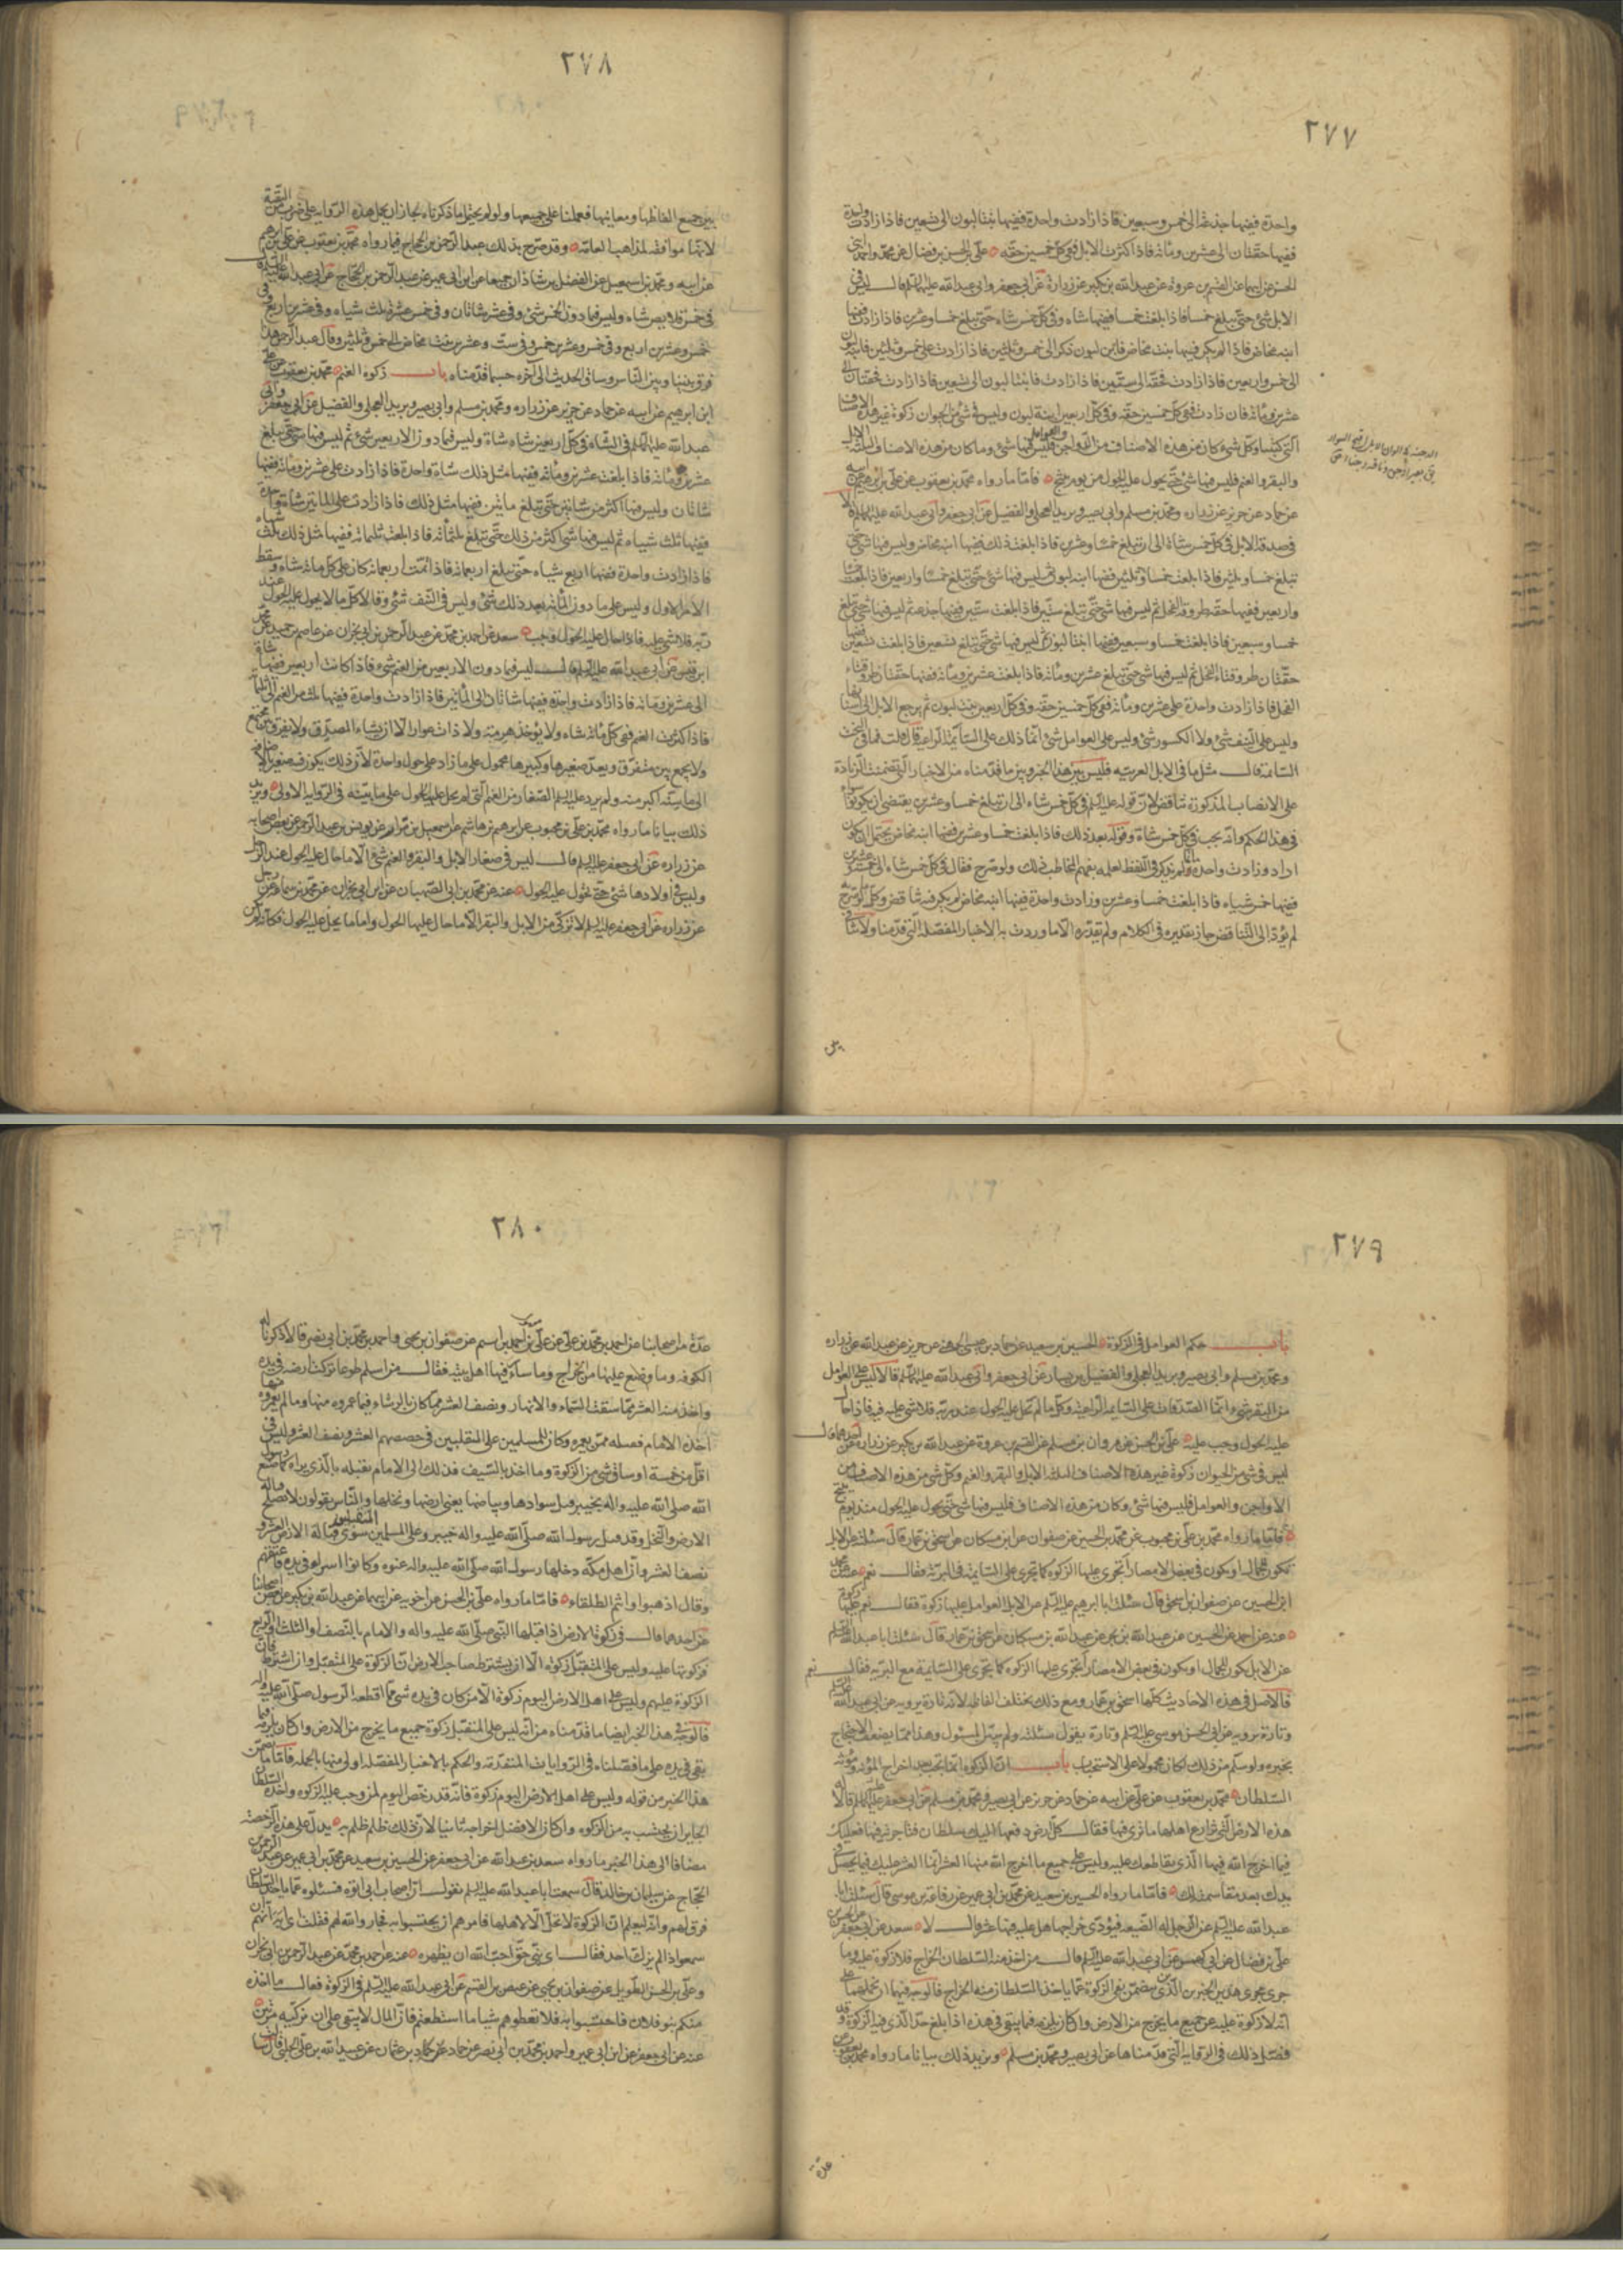 ٢٧٧
واحدة ففيها جذعة الى خمس وسبعين فاذا زادت واحدة ففيها بنتا لبون الى تسعين فاذا زادت واحدة
ففيها حقتان الى عشرين ومائة فاذا كثرت الابل ففي كل خمسين حقه علي بن الحسن بن فضال عن محمد واحمد ابني
الحسن عن ابيهما عن القسم بن عروة عن عبدالله بن بكير عن زرارة عن ابي جعفر وابي عبدالله عليهما السلم قالا ليس في
الابل شئ حتى تبلغ خمسا فاذا بلغت خمسا ففيها شاه وفي كل خمس شاه حتى تبلغ خمسا وعشرين فاذا زادت ففيها
ابنة مخاض فاذا لم يكن فيها بنت مخاض فابن لبون ذكر الى خمس وثلثين فاذا زادت على خمس وثلثين فابنة لبون
الى خمس واربعين فاذا زادت فحقة الى ستين فاذا زادت
عشرين ومائة فان زادت ففي كل خمسين حقه وفي كل اربعين ابنة لبون وليس في شئ من الحيوان زكوة غير هذه الاصناف
التي كتبنا وكل شئ كان من هذه الاصناف من الدواجن والعوامل فليس فيها شئ وما كان من هذه الاصناف الثلثة الابل
والبقر والغنم فليس فيها شئ حتى يحول عليه الحول من يوم ينتج فاما ما رواه محمد بن يعقوب عن علي بن ابرهيم عن ابيه
عن حماد عن حريز عن زراره ومحمد بن مسلم وابي بصير وبريد العجلي والفضيل عن ابي جعفر وابي عبدالله عليهما السلم قالا
في صدقة الابل في كل خمس شاة الى ان تبلغ خمسا وعشرين فاذا بلغت ذلك ففيها ابنة مخاض وليس فيها شئ حتى
تبلغ خمسا وثلثين فاذا بلغت خمسا وثلثين ففيها ابنة لبون ثم ليس فيها شئ حتى تبلغ خمسا واربعين فاذا بلغت خمسا
واربعين ففيها حقة طروقة الفحل ثم ليس فيها شئ حتى تبلغ ستين فاذا بلغت ستين ففيها جذعة ثم ليس فيها شئ حتى تبلغ
خمسا وسبعين فاذا بلغت خمسا وسبعين ففيها ابنتا لبون ثم ليس فيها شئ حتى تبلغ تسعين فاذا بلغت تسعين ففيها
حقتان طروقتا الفحل ثم ليس فيها شئ حتى تبلغ عشرين ومائة فاذا بلغت عشرين ومائة ففيها حقتان طروقتا
الفحل فاذا زادت واحدة على عشرين ومائة ففي كل خمسين حقه وفي كل اربعين بنت لبون ثم يرجع الابل الى اسنانها
وليس على النيف شئ ولا الكسور شئ وليس على العوامل شئ انما ذلك على السائمة الراعية قال قلت فما في البخت
السائمة قال مثل ما في الابل العربيه فليس بين هذا الخبر وبين ما قدمناه من الاخبار التي تضمنت الزيادة
على الانصاب المذكورة تناقض لان قوله عليه السلم في كل خمس شاه الى ان تبلغ خمسا وعشرين يقتضي ان يكون
في هذا الحكم وانه يجب في كل خمس شاة وقوله بعد ذلك فاذا بلغت خمسا وعشرين ففيها ابنة مخاض يحتمل ان يكون
اراد وزادت واحدة وانما لم يذكر في اللفظ لعلمه بفهم المخاطب ذلك ولو صرح فقال في كل خمس شاه الى خمس وعشرين
ففيها خمس شياه فاذا بلغت خمسا وعشرين وزادت واحدة ففيها ابنة مخاض لم يكن فيه تناقض وكل ما لو صرح
لم يؤد الى التناقض جاز تقديره في الكلام ولم نقدره الا ما وردت به الاخبار المفصلة التي قدمنا ولا تنافي
بين
٢٧٨
بين جميع الفاظها ومعانيها فعملنا على جميعها ولو لم يحتمل ما ذكرناه لجاز ان يحمل هذه الروايه على ضرب من التقية
لانها موافقه لمذاهب العامة وقد صرح بذلك عبدالرحمن بن الحجاج فيما رواه محمد بن يعقوب عن علي بن ابرهيم
عن ابيه ومحمد بن اسمعيل عن الفضل بن شاذان جميعا عن ابن ابي عمير عن عبدالرحمن بن الحجاج عن ابي عبدالله عليه السلم
في خمس قلايص شاه وليس فيما دون الخمس شئ وفي عشر شاتان وفي خمس عشرة ثلث شياه وفي عشرين اربع وفي
خمس وعشرين خمس وفي ست وعشرين بنت مخاض الى خمس وثلثين وقال عبدالرحمن هذا
فرق بيننا وبين الناس وساق الحديث الى آخره حسبما قدمناه باب زكوة الغنم محمد بن يعقوب عن علي
ابن ابرهيم عن ابيه عن حماد عن حريز عن زراره ومحمد بن مسلم وابي بصير وبريد العجلي والفضيل عن ابي جعفر وابي
عبدالله عليهما السلم في الشاه في كل اربعين شاه شاة وليس فيما دون الاربعين شئ ثم ليس فيها شئ حتى تبلغ
عشرين ومائة فاذا بلغت عشرين ومائه ففيها مثل ذلك شاة واحدة فاذا زادت على عشرين ومائة ففيها
شاتان وليس فيها اكثر من شاتين حتى تبلغ مأتين ففيها مثل ذلك فاذا زادت على المائتين شاة واحدة
ففيها ثلث شياه ثم ليس فيها شئ اكثر من ذلك حتى تبلغ ثلثمائة فاذا بلغت ثلثمائة ففيها مثل ذلك ثلث شياه
فاذا زادت واحدة ففيها اربع شياه حتى تبلغ اربعمائة فاذا تمت اربعمائة كان على كل مائة شاه وسقط
الامر الاول وليس على ما دون المائة بعد ذلك شئ وليس في النيف شئ وقالا كل ما لا يحول عليه الحول عند
ربه فلا شئ عليه فاذا حال عليه الحول وجب سعد عن احمد بن محمد عن عبدالرحمن بن ابي نجران عن عاصم بن حميد عن محمد
ابن قيس عن ابي عبدالله عليه السلم قال ليس فيما دون الاربعين من الغنم شئ فاذا كانت اربعين ففيها شاة
الى عشرين ومائة فاذا زادت واحدة ففيها شاتان الى المأتين فاذا زادت واحدة ففيها ثلث من الغنم الى ثلثمائة
فاذا كثرت الغنم ففي كل مائة شاه ولا يؤخذ هرمة ولا ذات عوار الا ان يشاء المصدق ولا يفرق بين مجتمع
ولا يجمع بين متفرق ويعد صغيرها وكبيرها محمول على ما زاد على حول واحدة لان ذلك يكون فيه صغير بالاضافة
الى ما سنه اكبر منه ولم يرد عليه السلم الصغار من الغنم التي لم يحل عليه الحول على ما بينته في الرواية الاولى ويزيد
ذلك بيانا ما رواه محمد بن علي بن محبوب عن ابرهيم بن هاشم عن اسمعيل بن مرار عن يونس بن عبدالرحمن عن بعض اصحابه
عن زراره عن ابي جعفر عليه السلم قال ليس في صغار الابل والبقر والغنم شئ الا ما حال عليه الحول عند الرجل
وليس في اولادها شئ حتى يحول عليه الحول عنه عن محمد بن ابي الصهبان عن ابن ابي نجران عن محمد بن سماعة عن رجل
عن زراره عن ابي جعفر عليه السلم لا تزكى من الابل والبقر الا ما حال عليها الحول واما ما يحل عليه الحول فكانه لم يكن
٢٧٩
باب حكم العوامل في الزكوة الحسين بن سعيد عن حماد بن عيسى الجهني عن حريز بن عبدالله عن زراره
ومحمد بن مسلم وابي بصير وبريد العجلي والفضيل بن يسار عن ابي جعفر وابي عبدالله عليهما السلم قالا ليس على العوامل
من البقر شئ وانما الصدقات على السايمة الراعية وكل ما لم يحل عليه الحول عند ربه فلا شئ عليه فيه فاذا حال
عليه الحول وجب عليه علي بن الحسن عن هرون بن مسلم عن القسم بن عروة عن عبدالله بن بكير عن زرارة عن احدهما قال
ليس في شئ من الحيوان زكوة غير هذه الاصناف الثلثة الابل والبقر والغنم وكل شئ من هذه الاصناف من
الدواجن والعوامل فليس فيها شئ وكان من هذه الاصناف فليس فيها شئ حتى يحول عليه الحول منذ يوم ينتج
فاما ما رواه محمد بن علي بن محبوب عن محمد بن الحسين عن صفوان عن ابن مسكان عن اسحق بن عمار قال سئلته عن الابل
تكون للجمال او يكون في بعض الامصار أتجري عليها الزكوة كما تجري على السايمة في البرية فقال نعم عنه عن محمد
ابن الحسين عن صفوان بن اسحق قال سئلت ابا ابرهيم عليه السلم عن الابل العوامل عليها زكوة فقال نعم عليها زكوة
عنه عن احمد عن الحسين عن عبدالله بن بحر عن عبدالله بن مسكان عن اسحق بن عمار قال سئلت ابا عبدالله عليه السلم
عن الابل تكون للجمال او يكون في بعض الامصار أتجري عليها الزكوة كما تجري على السايمة مع البرية فقال نعم
فالاصل في هذه الاحاديث كلها اسحق بن عمار ومع ذلك يختلف الفاظه لانه تارة يرويه عن ابي عبدالله عليه السلم
وتارة يرويه عن ابي الحسن موسى عليه السلم وتارة يقول سئلته ولم يبين المسئول وهذا مما يضعف الاحتجاج
بخبره ولو سلم من ذلك لكان محمولا على الاستحباب باب ان الزكوة انما تجب بعد اخراج المؤنة ومؤنة
السلطان محمد بن يعقوب عن علي عن ابيه عن حماد عن حريز عن ابي بصير ومحمد بن مسلم عن ابي جعفر عليه السلم انهما قالا له
هذه الارض التي تزارع اهلها ما ترى فيها فقال كل ارض دفعها اليك سلطان فتاجرته فيها فعليك
فيما اخرج الله فيها الذي يقاطعك عليه وليس على جميع ما اخرج الله منها العشر انما العشر عليك فيما يحصل في
يدك بعد مقاسمته لك فاما ما رواه الحسين بن سعيد عن محمد بن ابي عمير عن رفاعة بن موسى قال سئلت ابا
عبدالله عليه السلم عن الرجل له الضيعة فيؤدي خراجها هل عليه فيها عشر قال لا سعد عن ابي جعفر عن الحسين
علي بن فضال عن ابي كهمس عن ابي عبدالله عليه السلم قال من اخذ منه السلطان الخراج فلا زكوة عليه وما
جرى مجرى هذين الخبرين الذي يتضمن نفي الزكوة عما ياخذ السلطان منه الخراج فالوجه فيها ان نحملها على
انه لا زكوة عليه عن جميع ما يخرج من الارض وان كان يلزمه فيما يبقى في يده اذا بلغ حد الذي فيه الزكوة وقد
فصل ذلك في الرواية التي قدمناها عن ابي بصير ومحمد بن مسلم ويزيد ذلك بيانا ما رواه محمد بن يعقوب عن
عدة
٢٨٠
عدة من اصحابنا عن احمد بن محمد بن علي عن علي بن احمد بن اشيم عن صفوان بن يحيى واحمد بن محمد بن ابي نصر قالا ذكرنا له
الكوفه وما وضع عليها من الخراج وما سار فيها اهل بيته فقال من اسلم طوعا تركت ارضه في يده
واخذ منه العشر مما سقت السماء والانهار ونصف العشر مما كان بالرشاء فيما عمروه منها وما لم يعمروه منها
اخذه الامام فقبله ممن يعمره وكان للمسلمين على المتقبلين في حصصهم العشر ونصف العشر وليس في
اقل من خمسة اوساق شئ من الزكوة وما اخذ بالسيف فذلك الى الامام يقبله بالذي يراه كما صنع رسول
الله صلى الله عليه واله بخيبر قبل سوادها وبياضها يعني ارضها ونخلها والناس يقولون لا تصلح قبالة
الارض والنخل وقد قبل رسول الله صلى الله عليه واله خيبر وعلى المتقبلين سوى قبالة الارض العشر و
نصف العشر وان اهل مكة دخلها رسول الله صلى الله عليه واله عنوه وكانوا اسراء في يده فاعتقهم
وقال اذهبوا وانتم الطلقاء فاما ما رواه علي بن الحسن عن اخويه عن ابيهما عن عبدالله بن بكير عن بعض اصحابنا
عن احدهما قال في زكوة الارض اذا قبلها النبي صلى الله عليه واله والامام بالنصف او الثلث او الربع
فزكوتها عليه وليس على المتقبل زكوة الا ان يشترط صاحب الارض ان الزكوة على المتقبل وان اشترط فان
الزكوة عليهم وليس على اهل الارض اليوم زكوة الا من كان في يده شئ مما اقطعه الرسول صلى الله عليه واله
فالوجه في هذا الخبر ايضا ما قدمناه من انه ليس على المتقبل زكوة جميع ما يخرج من الارض وان كان يلزمه فيما
بقى في يده على ما فصلناه في الروايات المتقدمة والحكم بالاخبار المفصلة اولى منها بالجمله فاما ما تضمن
هذا الخبر من قوله وليس على اهل الارض اليوم زكوة فانه قد رخص اليوم لمن وجب عليه الزكوه واخذه السلطان
الجاير ان يحتسب به من الزكوه وان كان الافضل اخراجه ثانيا لان ذلك ظلم ظلم به يدل على هذه الرخصة
مضافا الى هذا الخبر ما رواه سعد بن عبدالله عن ابي جعفر عن الحسين بن سعيد عن محمد بن ابي عمير عن عبدالرحمن
الحجاج عن سليمن بن خالد قال سمعت ابا عبدالله عليه السلم يقول ان اصحاب ابي اتوه فسئلوه عما ياخذ السلطان
فرق لهم وانه ليعلم ان الزكوة لا تحل الا لاهلها فامرهم ان يحتسبوا به فجاز والله لهم فقلت اي ابه انهم ان
سمعوا ذا لم يزك احد فقال اي بني حق احب الله ان يظهره عنه عن احمد بن محمد عن عبدالرحمن بن ابي نجران
وعلي بن الحسن الطويل عن صفوان بن يحيى عن عيص بن القسم عن ابي عبدالله عليه السلم في الزكوة فقال ما اخذه
منكم بنو فلان فاحتسبوا به فلا تعطوهم شيئا ما استطعتم فان المال لا يبقى على ان تزكيه مرتين
عنه عن ابي جعفر عن ابن ابي عمير واحمد بن محمد بن ابي نصر عن حماد بن عثمان عن عبيدالله بن علي الحلبي قال سألت